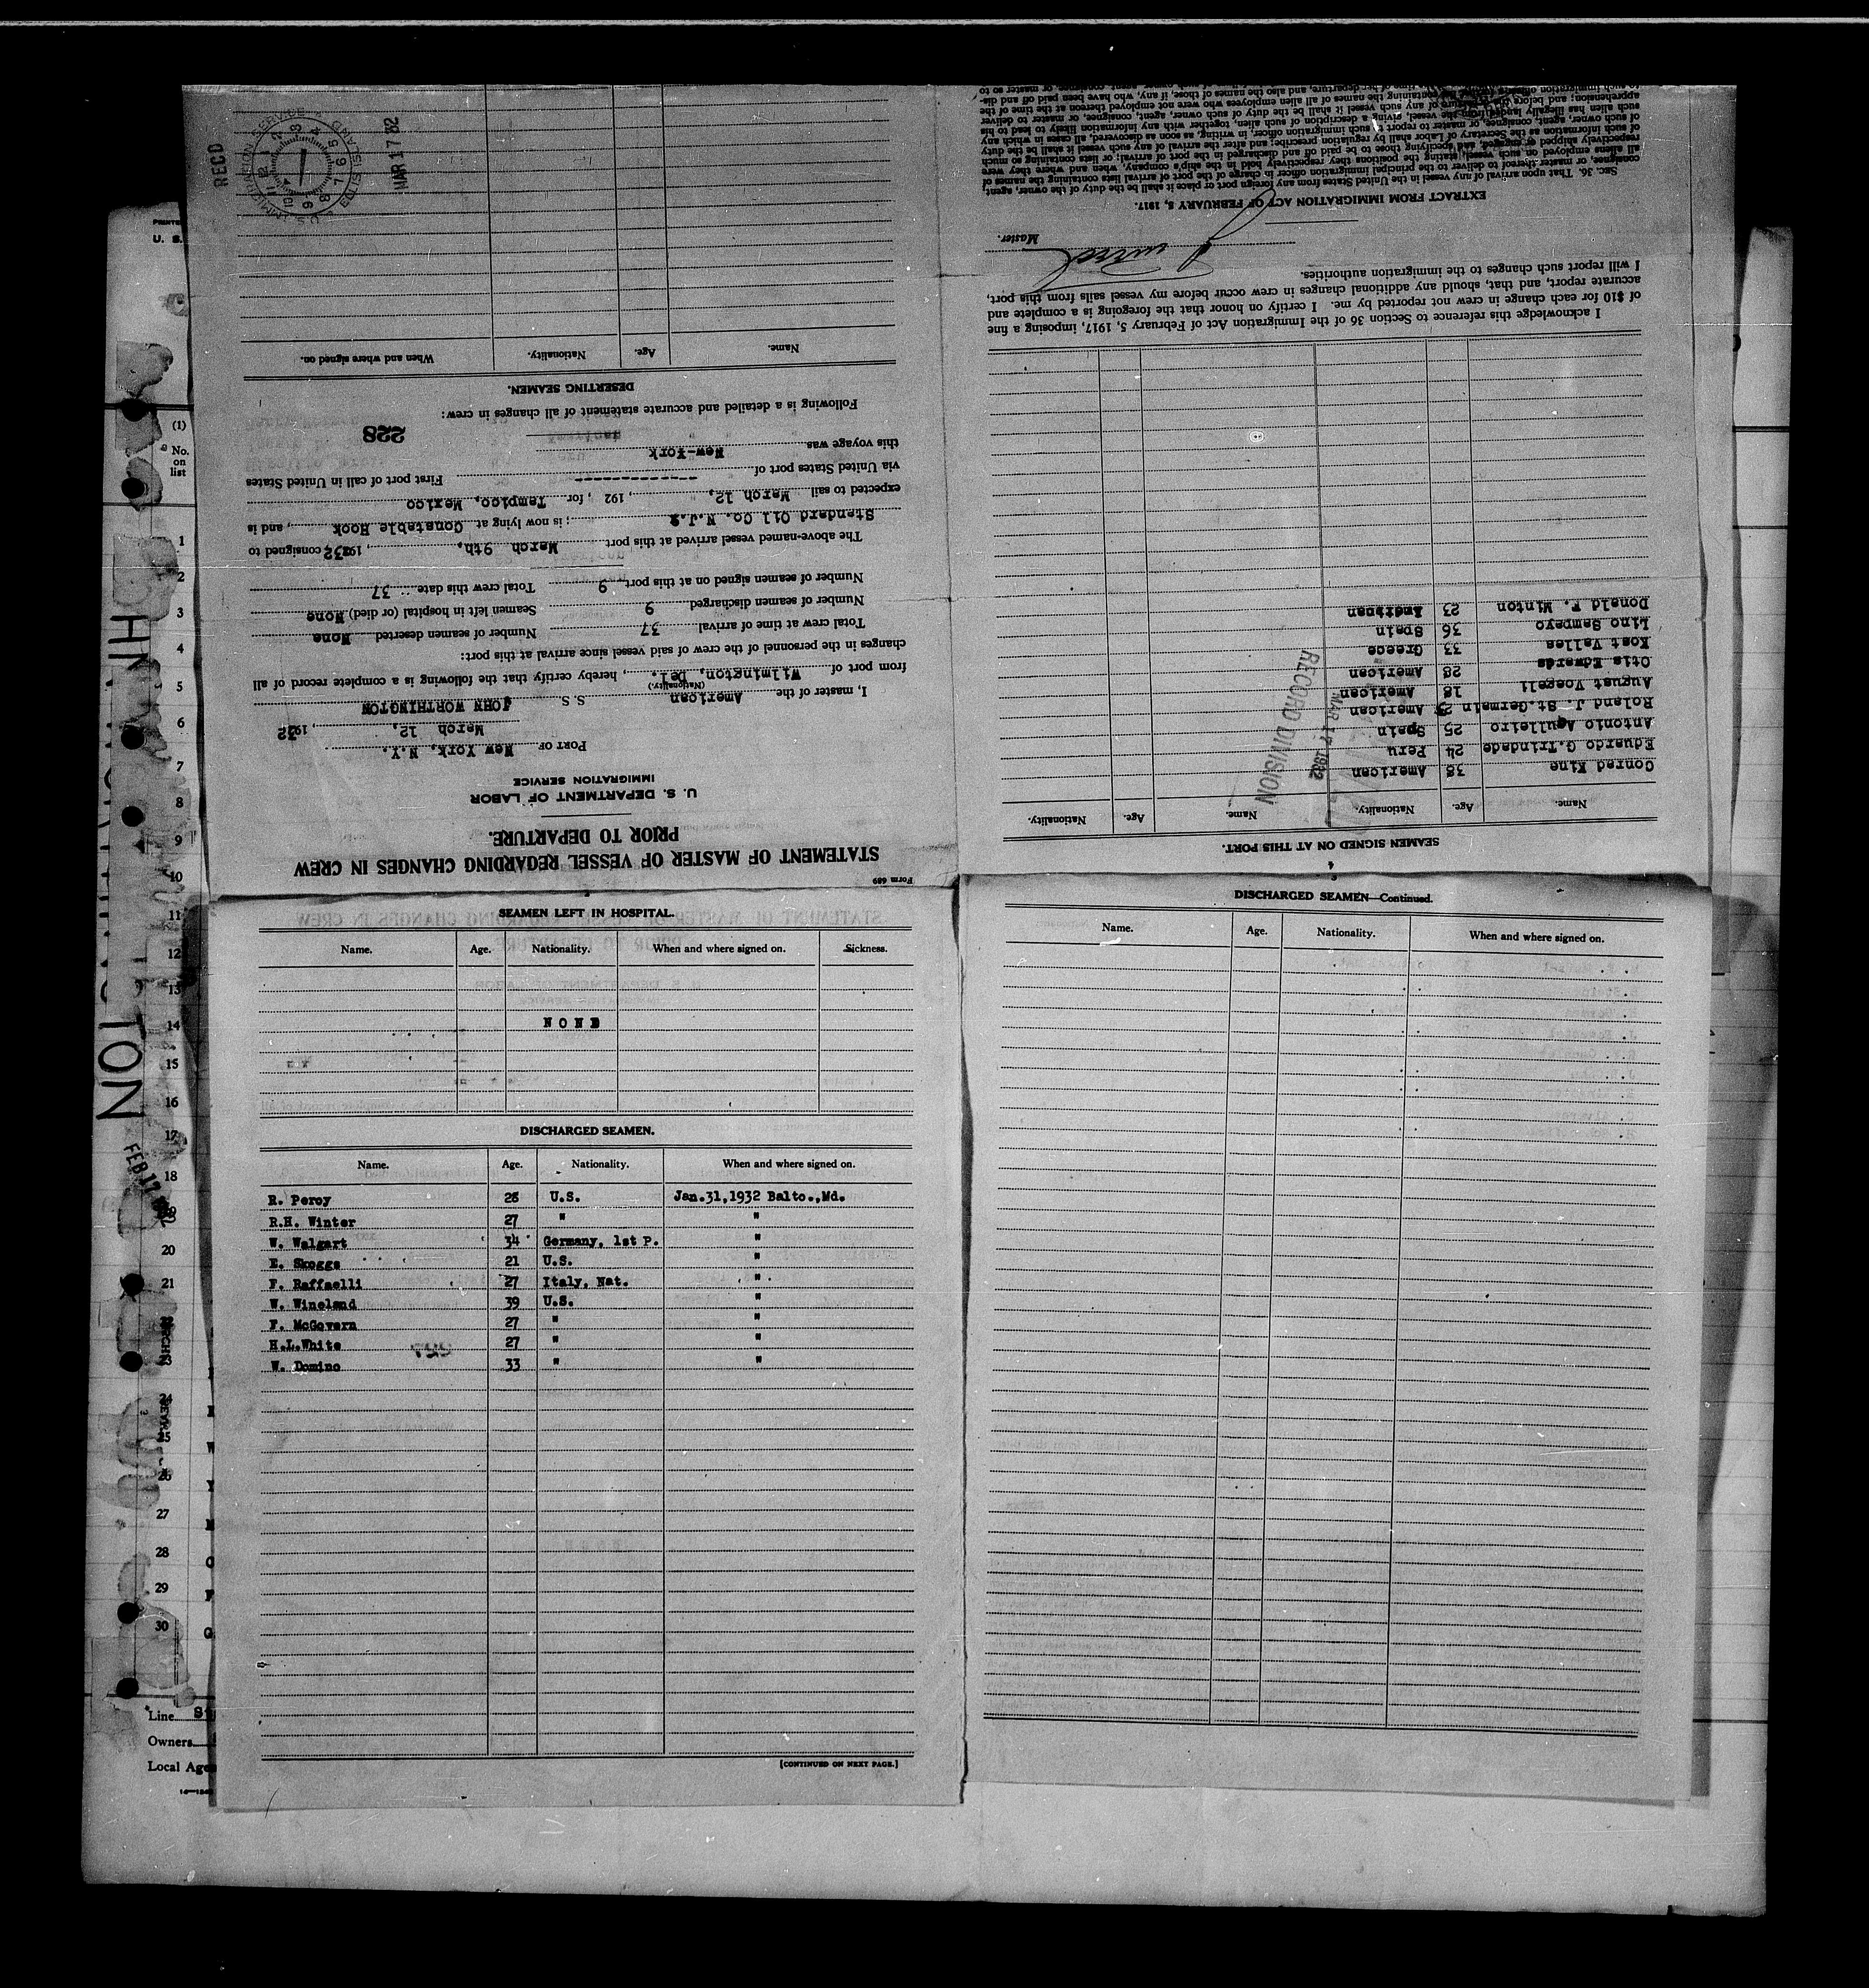 Form 689
STATEMENT OF MASTER OF VESSEL REGARDING CHANGES IN CREW
PRIOR TO DEPARTURE.
U. S. DEPARTMENT OF LABOR
IMMIGRATION SERVICE
PORT OF New York, N.Y.
March 12, 1932
I, master of the American S. S. JOHN WORTHINGTON
(Nationality.)
from port of Wilmington, Del. , hereby certify that the following is a complete record of all
changes in the personnel of the crew of said vessel since arrival at this port:
Total crew at time of arrival 37 Number of seamen deserted None
Number of seamen discharged 9 Seamen left in hospital (or died) None
Number of seamen signed on at this port 9 Total crew this date 37
The above-named vessel arrived at this port March 9th, , 1932 consigned to
Standard Oil Co. N.J. ; is now lying at Constable Hook , and is
expected to sail March 12, , 192 , for Tampico, Mexico
via United States port of -------------- First port of call in United States
this voyage was New-York
228
Following is a detailed and accurate statement of all changes in crew:
DESERTING SEAMEN.
Name. Age. Nationality. When and where signed on.
REC'D
MAR 17 32
IMMIGRATION SERVICE
ELLIS ISLAND
SEAMEN LEFT IN HOSPITAL.
Name. Age. Nationality. When and where signed on. Sickness.
NONE
DISCHARGED SEAMEN.
Name. Age. Nationality. When and where signed on.
R. Percy 28 U.S. Jan.31,1932 Balto.,Md.
R.H. Winter 27 " "
W. Walgart 34 Germany, 1st P. "
E. Skoggs 21 U.S. "
F. Raffaelli 27 Italy, Nat. "
W. Wineland 39 U.S. "
F. McGovern 27 " "
H.L.White 27 " "
W. Domino 33 " "
[CONTINUED ON NEXT PAGE.]
3
DISCHARGED SEAMEN—Continued.
Name. Age. Nationality. When and where signed on.
4
SEAMEN SIGNED ON AT THIS PORT.
Name. Age. Nationality. Name. Age. Nationality.
Conrad Kine 38 American
Eduardo G.Trindade 24 Peru
Antonio Aguileiro 25 Spain
Roland J. St.Germain American
August Voegeli 18 American
Otis Edwards 28 American
Kost Valles 33 Greece
Lino Sampayo 36 Spain
Donald F. Minton 23 American
RECORD DIVISION
MAR 17 1932
I acknowledge this reference to Section 36 of the Immigration Act of February 5, 1917, imposing a fine
of $10 for each change in crew not reported by me. I certify on honor that the foregoing is a complete and
accurate report, and that, should any additional changes in crew occur before my vessel sails from this port,
I will report such changes to the immigration authorities.
Master.
EXTRACT FROM IMMIGRATION ACT OF FEBRUARY 5, 1917.
Sec. 36. That upon arrival of any vessel in the United States from any foreign port or place it shall be the duty of the owner, agent,
consignee, or master thereof to deliver to the principal immigration officer in charge of the port of arrival lists containing the names of
all aliens employed on such vessel, stating the positions they respectively hold in the ship's company, when and where they were
respectively shipped or engaged, and specifying those to be paid off and discharged in the port of arrival; or lists containing so much
of such information as the Secretary of Labor shall by regulation prescribe; and after the arrival of any such vessel it shall be the duty
of such owner, agent, consignee, or master to report to such immigration officer, in writing, as soon as discovered, all cases in which any
such alien has illegally landed from the vessel, giving a description of such alien, together with any information likely to lead to his
apprehension; and before the departure of any such vessel it shall be the duty of such owner, agent, consignee, or master to deliver
to such immigration officer a further list containing the names of all alien employees who were not employed thereon at the time of the
U. S.
(1)
No.
on
list
1
2
3
4
5
6
7
8
9
10
11
12
13
14
15
16
17
18
20
21
23
24
25
26
27
28
29
30
HIN
TON
FEB 17
Line
Owners
Local Age